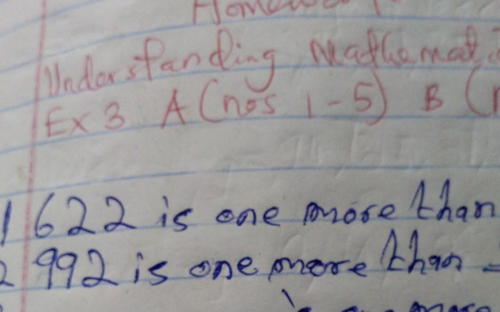 Homework
Understanding Mathemat
Ex 3 A (nos 1-5) B (
1 622 is one more than
2 992 is one more than -
is one more